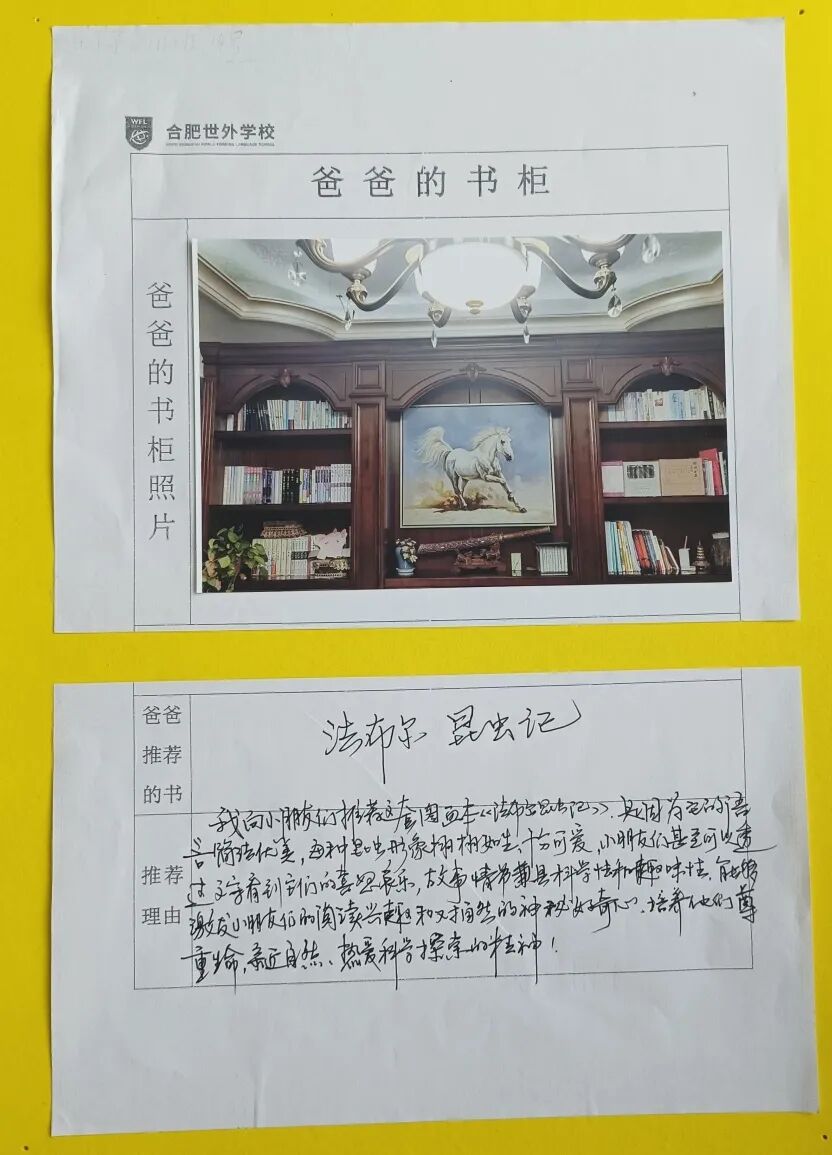 WFL
合肥世外学校
爸爸的书柜
爸爸的书柜照片
爸爸
推荐
的书
法布尔 昆虫记
推荐
理由
我向小朋友们推荐这套图画本《法布尔昆虫记》，是因为它的语
言简洁优美，每种昆虫形象栩栩如生，十分可爱，小朋友们甚至可以透
过文字看到它们的喜怒哀乐，故事情节兼具科学性和趣味性，能够
激发小朋友们的阅读兴趣和对自然的神秘好奇心，培养他们尊
重生命，亲近自然、热爱科学探索的精神！